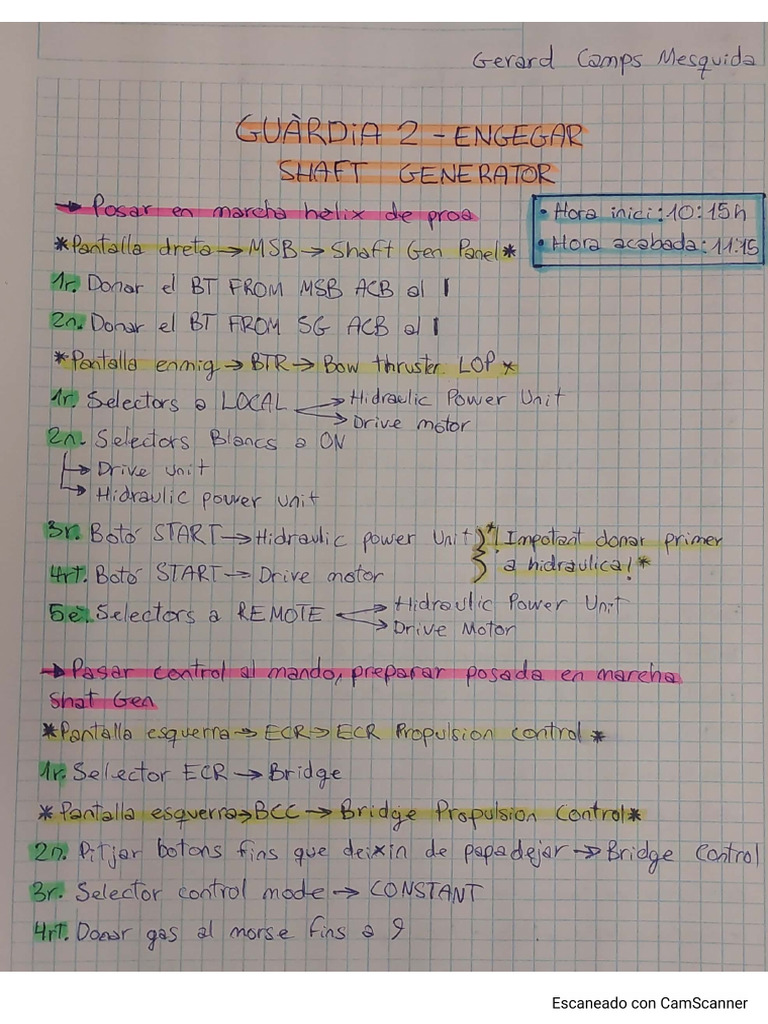 Gerard Camps Mesquida
GUÀRDiA 2 - ENGEGAR
SHAFT GENERATOR
→ Posar en marcha hèlix de proa
• Hora inici: 10:15h
• Hora acabada: 11:15
*Pantalla dreta → MSB → Shaft Gen Panel*
1r. Donar el BT FROM MSB ACB al I
2n. Donar el BT FROM SG ACB al I
*Pantalla enmig → BTR → Bow thruster LOP*
1r. Selectors a LOCAL → Hidraulic Power Unit
→ Drive motor
2n. Selectors Blancs a ON
→ Drive unit
→ Hidraulic power unit
3r. Botó START → Hidraulic power Unit
4rt. Botó START → Drive motor
*! Impotant donar primer
a hidraulica! *
5è. Selectors a REMOTE → Hidraulic Power Unit
→ Drive Motor
→ Pasar control al mando, preparar posada en marcha
Shat Gen
*Pantalla esquerra → ECR → ECR Propulsion control *
1r. Selector ECR → Bridge
*Pantalla esquerra → BCC → Bridge Propulsion Control*
2n. Pitjar botons fins que deixin de papadejar → Bridge Control
3r. Selector control mode → CONSTANT
4rt. Donar gas al morse fins a 9
Escaneado con CamScanner